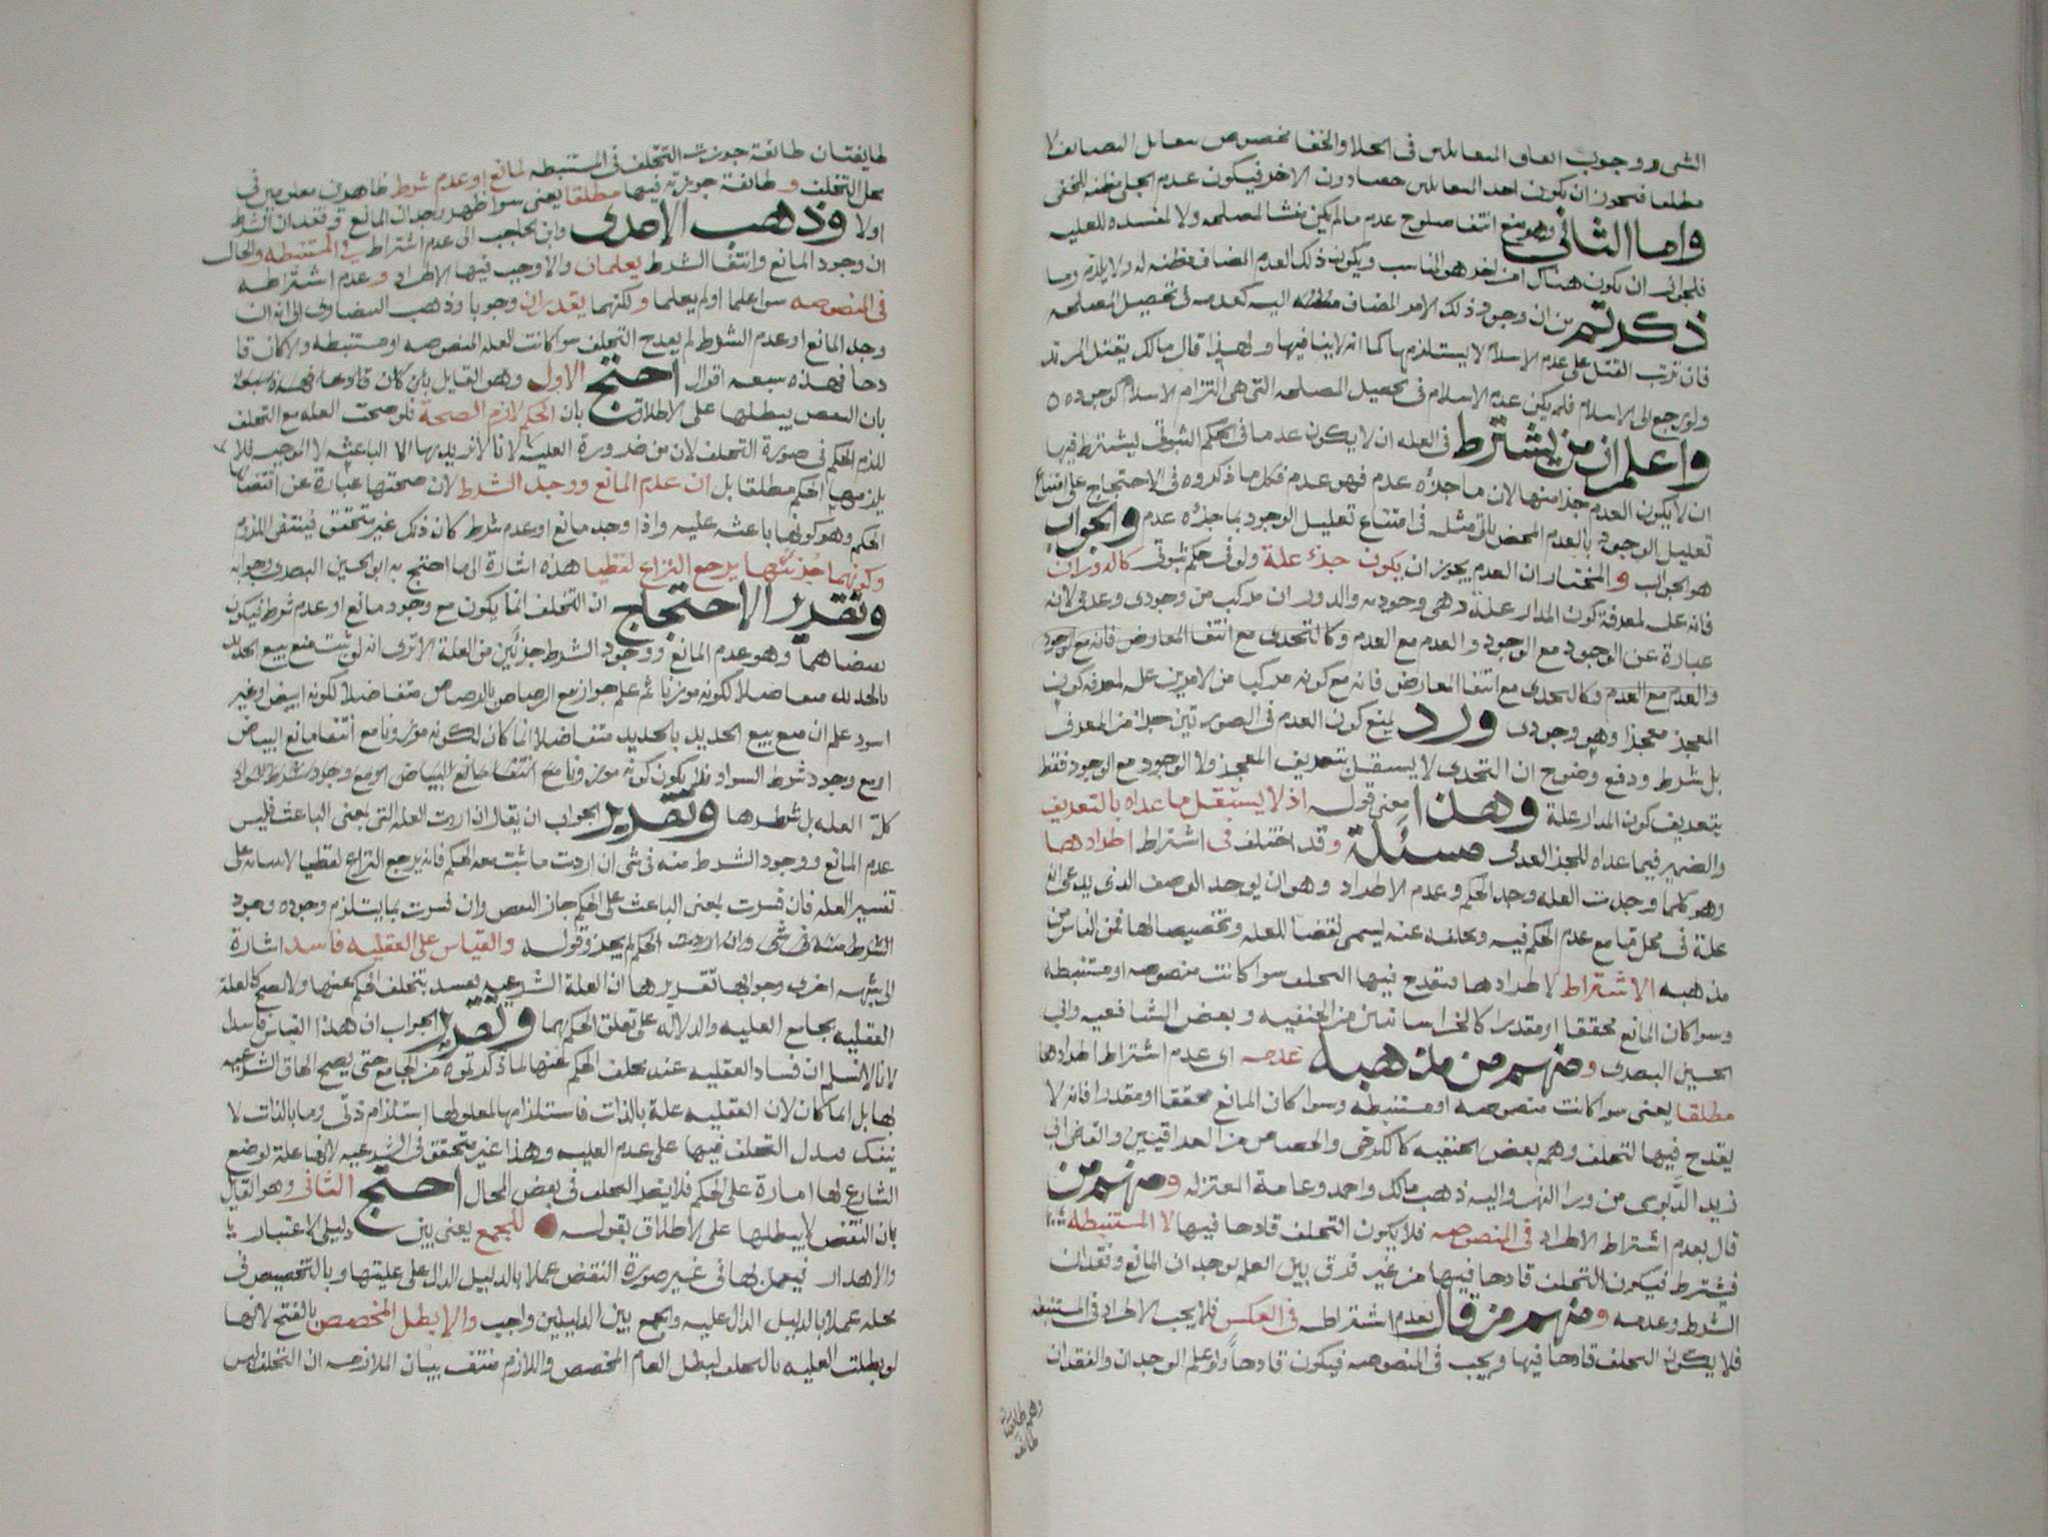 الشى ووجوب العاو المعاملىں فى الجلا والخفا مخصوص معابل المصاىف لا
مطلقا فيجوز ان يكون احد المعاملىں حصا دون الاخر فيكون عدم الجلى مظنه للخفى
واما الثانى وهو منع انتفا صلوح عدم مالم يكن منشا لمصلحه ولا لمفسده للعليه
فلجواز ان يكون هناك امر اخر هو المناسب ويكون ذلك العدم المضاف مظنه له ولا يلزم وما
ذكرتم من ان وجود ذلك الامر المضاف اليه كعدمه فى تحصيل المصلحه
فان ترتب القتل على عدم الاسلام لا يستلزمها كما انه لا ينافيها ولهذا قال مالك يقتل المرتد
ولو رجع الى الاسلام فلم يكن عدم الاسلام فى تحصيل المصلحه التى هى التزام الاسلام كوجوده
واعلم ان من يشترط فى العله ان لا يكون عدما فى الحكم الثبوتى يشترط فيها
ان لا يكون العدم جزا منها لان ما جزؤه عدم فهو عدم فكل ما ذكروه فى الاحتجاج على امتناع
تعليل الوجود بالعدم المحض ياتى مثله فى امتناع تعليل الوجود بما جزؤه عدم والجواب
هو الجواب والمختار ان العدم يجوز ان يكون جزء علة ولو فى حكم ثبوتى كالدوران
فانه عله لمعرفة كون المدار علة وهى وجوديه والدوران مركب من وجودى وعدمى لانه
عبارة عن الوجود مع الوجود والعدم مع العدم وكالتحدى مع انتفا المعارض فانه مع الوجود
والعدم مع العدم وكالتحدى مع انتفا المعارض فانه مع كونه مركبا من الامرين عله لمعرفه كون
المعجز معجزا وهو وجودى ورد بمنع كون العدم فى الصورتين جزا من المعرف
بل شرط ودفع وضوح ان التحدى لا يستقل بتعريف المعجز ولا الوجود مع الوجود فقط
بتعريف كون المدار علة وهذا معنى قوله اذ لا يستقل ما عداه بالتعريف
والضمير فيما عداه للجزء العدمى مسئلة وقد اختلف فى اشتراط اطرادها
وهو كلما وجدت العله وجد الحكم وعدم الاطراد وهو ان يوجد الوصف الذى يدعى انه
علة فى محل ما مع عدم الحكم فيه وتخلفه عنه يسمى نقضا للعله وتخصيصا لها فمن الناس من
مذهبه الاشتراط لاطرادها فيقدح فيها التخلف سوا كانت منصوصه او مستنبطه
وسوا كان المانع محققا او مقدرا كالخراسانيين من الحنفيه وبعض الشافعيه وابى
الحسين البصرى ومنهم من مذهبه عدمه اى عدم اشتراط اطرادها
مطلقا يعنى سوا كانت منصوصه او مستنبطه وسوا كان المانع محققا او مقدرا فانه لا
يقدح فيها التخلف وهم بعض الحنفيه كالكرخى والجصاص من العراقيين والقاضى ابى
زيد الدبوسى من ورا النهر واليه ذهب مالك واحمد وعامة المعتزله ومنهم من
قال بعدم اشتراط الاطراد فى المنصوصه فلا يكون التخلف قادحا فيها لا المستنبطه
فيشترط فيكون التخلف قادحا فيها من غير فرق بين العلم بوجدان المانع وفقدان
الشرط وعدمه ومنهم من قال بعدم اشتراطه فى العكس فلا يجب الاطراد فى المستنبطه
فلا يكون التخلف قادحا فيها ويجب فى المنصوصه فيكون قادحا ولو علم الوجدان والفقدان
وهم طايفتان
طائفة
طايفتان طائفة جوزت التخلف فى المستنبطه لمانع او عدم شرط ظاهرين معلومين فى
محل التخلف وطائفة جوزته فيها مطلقا يعنى سوا ظهر وجدان المانع وفقدان الشرط
اولا وذهب الامدى وابن الحاجب الى عدم اشتراط فى المستنبطه والحال
ان وجود المانع وانتفا الشرط يعلمان والا وجب فيها الاطراد وعدم اشتراطه
فى المنصوصه سوا علما او لم يعلما ولكنهما يقدران وجوبا وذهب البيضاوى الى انه ان
وجد المانع او عدم الشرط لم يقدح التخلف سوا كانت العله المنصوصه او مستنبطه والا كان قا
دحا فهذه سبعه اقوال احتج الاول وهو القايل بان كان قادحا فهذه سبعة
بان النقض يبطلها على الاطلاق بان الحكم لازم الصحة فلو صحت العله مع التخلف
للزم الحكم فى صورة التخلف لان من ضرورة العلية لانا لا نريد بها الا الباعثه لا الموجبه فلا
يلزمها الحكم مطلقا بل ان عدم المانع ووجد الشرط لان صحتها عبارة عن اقتضائها
الحكم وهو كونها باعثه عليه واذا وجد مانع او عدم شرط كان ذلك غير متحقق فينتفى الملزوم
وكونهما جزئيها يرجع النزاع لفظيا هذه اشارة الى ما احتج به ابو الحسين البصرى وجوابه
وتقرير الاحتجاج ان التخلف انما يكون مع وجود مانع او عدم شرط فيكون
نقضاهما وهو عدم المانع ووجود الشرط جزئين من العلة الا ترى انه لو ثبت منع بيع الحديد
بالحديد متفاضلا لكونه موزونا ثم علم جواز مع الرصاص بالرصاص متفاضلا لكونه ابيض او غير
اسود علم ان منع بيع الحديد بالحديد متفاضلا انما كان لكونه موزونا مع انتفا مانع البياض
او مع وجود شرط السواد فلم يكون كونه موزونا مع انتفا مانع البياض او مع وجود شرط السواد
كل العله بل شطرها وتقرير الجواب ان يقال ان اردت العله التى بمعنى الباعث فليس
عدم المانع ووجود الشرط منه فى شى ان اردت ما ثبت معه الحكم فانه يرجع النزاع لفظيا لابتنائه على
تفسير العله فان فسرت بمعنى الباعث على الحكم جاز النقض وان فسرت بما يستلزم وجوده وجود
الشرط منه فى شى وان اردت الحكم لم يجز وقوله والقياس على العقليه فاسد اشارة
الى شبهه اخرى وجوابها تقريرها ان العلة الشرعيه يفسد بتخلف الحكم عنها ولا تصح كالعلة
العقليه بجامع العليه والدلاله على تعلق الحكم بهما وتقرير الجواب ان هذا القياس فاسد
لانا لا نسلم ان فساد العقليه عند تخلف الحكم عنها لما ذكرتموه من الجامع حتى يصح الحاق الشرعيه
بها بل انما كان لان العقليه علة بالذات فاستلزامها لمعلولها استلزام ذاتى وما بالذات لا
ينفك فيدل التخلف فيها على عدم العليه وهذا غير متحقق فى الشرعيه لانها علة لوضع
الشارع لها امارة على الحكم فلا يضر التخلف فى بعض المحال احتج الثانى وهو القايل
بان النقض لا يبطلها على الاطلاق بقوله للجمع يعنى بين دليلى الاعتبار
والاهدار فيعمل بها فى غير صورة النقض عملا بالدليل الدال على عليتها وبالتخصيص فى
محله عملا بالدليل الدال عليه والجمع بين الدليلين واجب والا بطل المخصص بالفتح لانها
لو بطلت العليه بالتخلف لبطل العام المخصص واللازم منتف بيان الملازمه ان التخلف ليس